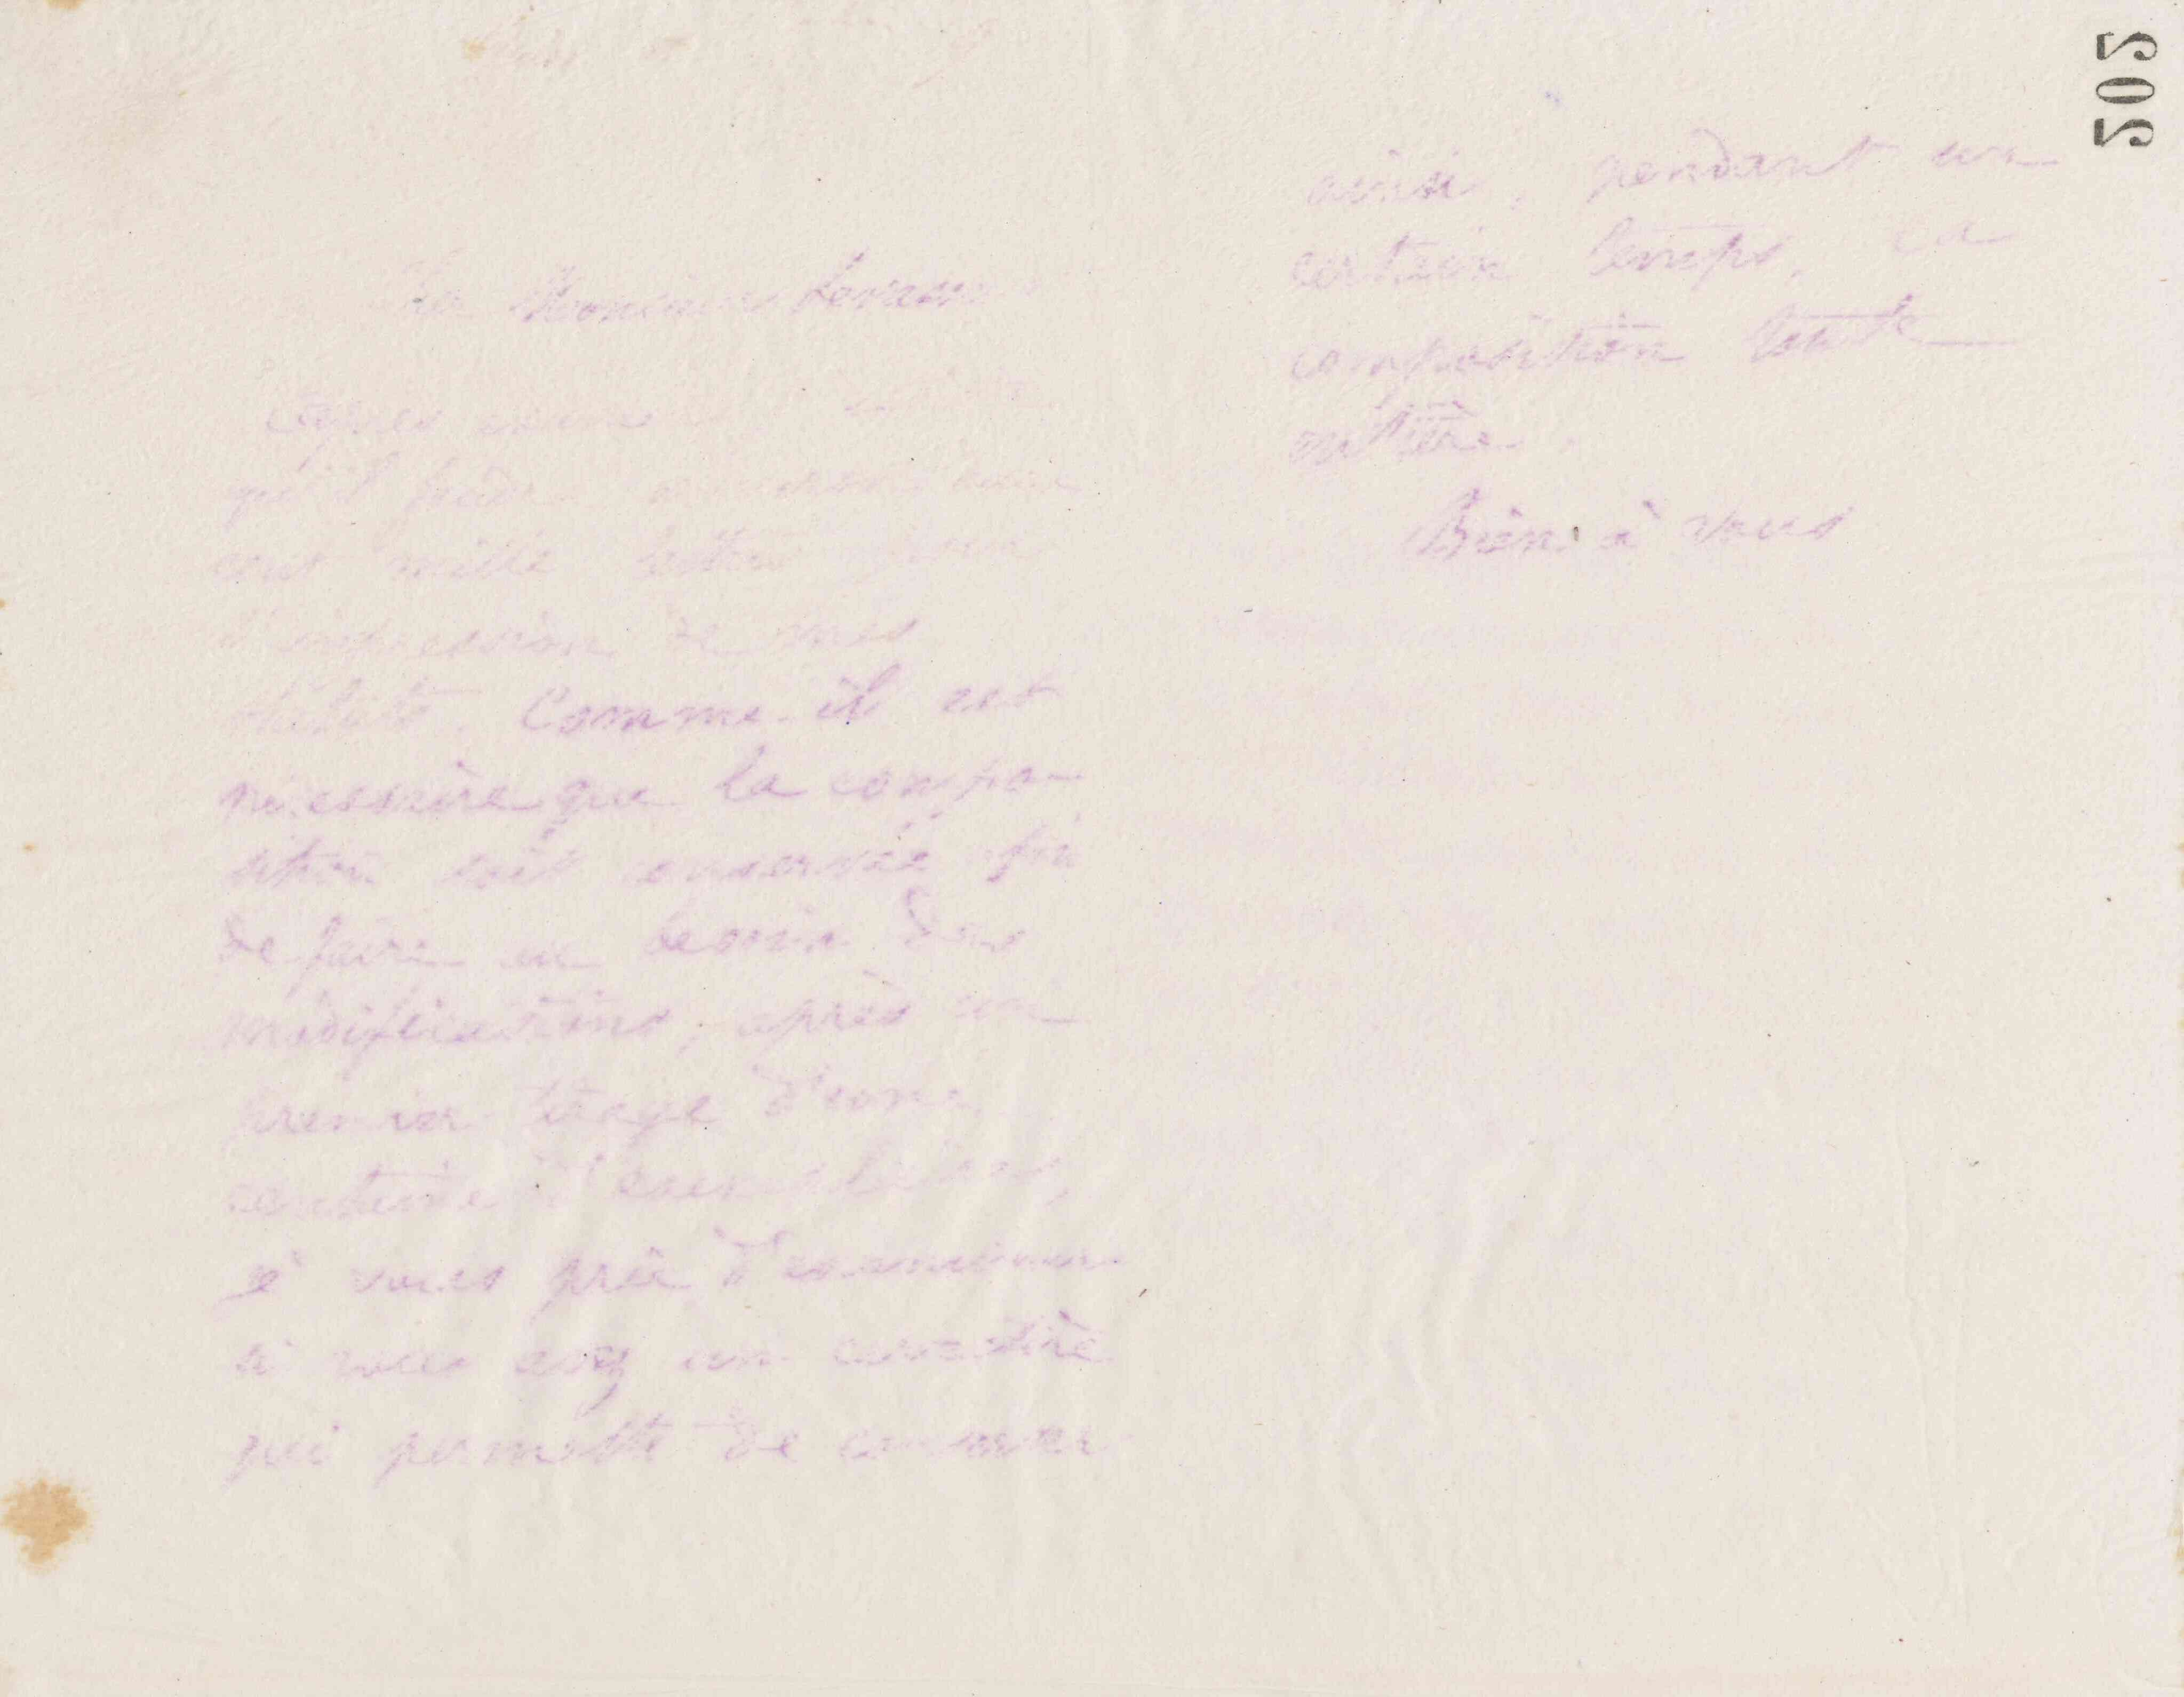 Monsieur
qu'il
cent mille
l'impression de mes
statuts. Comme il est
nécessaire que la compo-
sition soit conservée afin
de faire au besoin des
modifications, après un
premier tirage d'une
centaine d'exemplaires,
je vous prie d'examiner
si vous avez un caractère
qui permette de conserver
ainsi, pendant un
certain temps, la
composition toute
entière.
Bien à vous
502